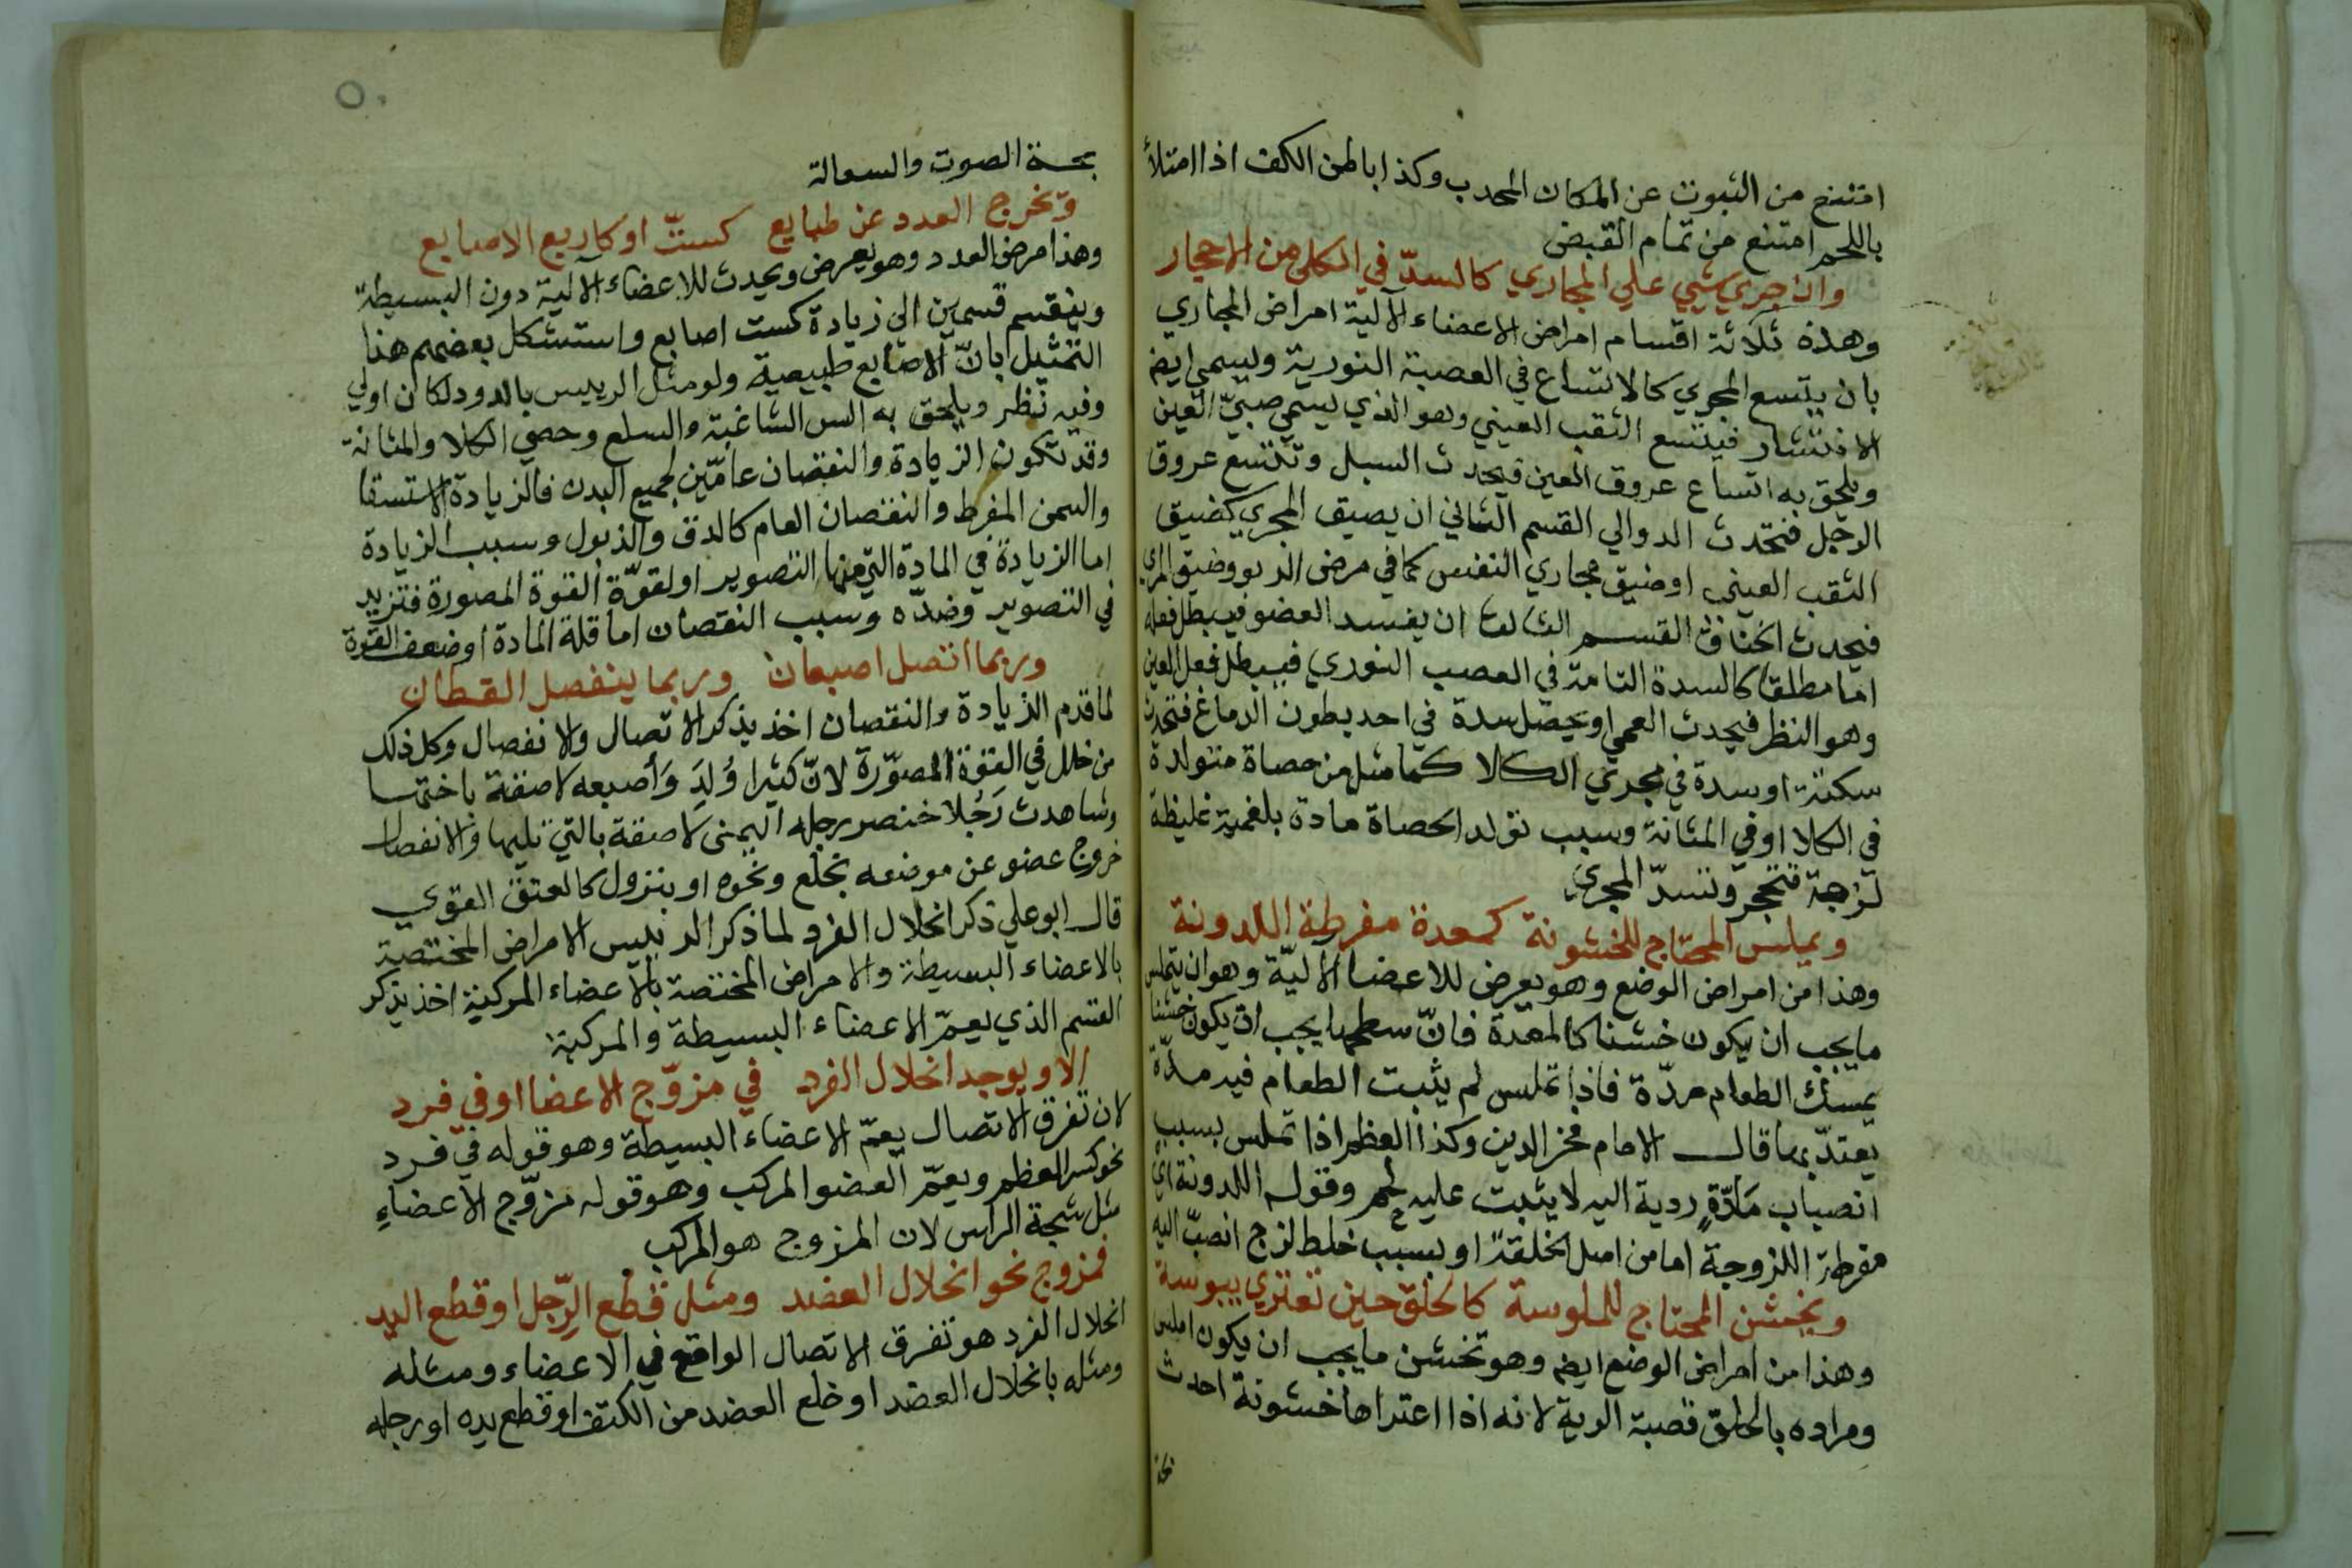 امتنع من الثبوت عن المكان المحدب وكذا باطن الكف اذا امتلأ
باللحم امتنع من تمام القبض
وان جري شي علي المجاري كالسدّ في الكلي من الاحجار
وهذه ثلاثة اقسام امراض الاعضاء الآلية امراض المجاري
بان يتسع المجري كالاتساع في العصبة النورية ويسمي ايض
الانتشار فيتسع الثقب العيني وهو الذي يسمي صبيّ العين
ويلحق به اتساع عروق العين فيحدث السبل وتتسع عروق
الرجل فتحدث الدوالي القسم الثاني ان يضيق المجري كضيق
الثقب العيني او ضيق مجاري النفس كما في مرض الربو وضيق المري
فيحدث الخناق القسم الثالث ان يفسد العضو فيبطل فعله
اما مطلقا كالسدة التامة في العصب النوري فيبطل فعل العين
وهو النظر فيحدث العمي او يحصل سدة في احد بطون الدماغ فتحدث
سكتة او سدة في مجري الكلا كما مثل من حصاة متولدة
في الكلا او في المثانة وسبب تولد الحصاة مادة بلغمية غليظة
لزجة فتتحجر وتسدّ المجري
ويملس المحتاج للخشونة كمعدة مفرطة اللدونة
وهذا من امراض الوضع وهو يعرض للاعضا الآليّة وهو ان يتملس
ما يجب ان يكون خشنا كالمعدة فانّ سطحها يجب ان يكون خشنا
يمسك الطعام مدّة فاذا تملس لم يثبت الطعام فيه مدّة
يعتدّ بها قال الامام فخر الدين وكذا العظم اذا تملس بسبب
انصباب مَادّةٍ ردية اليه لا يثبت عليه لحم وقوله اللدونة اي
مفرطة اللزوجة اما من اصل الخلقة او بسبب خلط لزج انصبّ اليه
ويخشن المحتاج للملوسة كالحلق حين تعتري يبوسة
وهذا من امراض الوضع ايض وهو تخشن ما يجب ان يكون املس
ومراده بالحلق قصبة الرية لانه اذا اعتراها خشونة احدث
بحة
بحة الصوت والسعالة
وتخرج العدد عن طبايع كستّ او كاربع الاصابع
وهذا مرض العدد وهو يعرض ويحدث للاعضاء الآلية دون البسيطة
وينقسم قسمين الي زيادة كست اصابع واستشكل بعضهم هذا
التمثيل بانّ الاصابع طبيعية ولو مثل الرييس بالدود لكان اولي
وفيه نظر ويلحق به السن الشاغية والسلع وحصي الكلا والمثانة
وقد تكون الزيادة والنقصان عامّين لجميع البدن فالزيادة الاستسقا
والسمن المفرط والنقصان العام كالدق والذبول وسبب الزيادة
اما الزيادة في المادة التي منها التصوير او لقوّة القوة المصورة فتزيد
في التصوير وضدّه وسبب النقصان اما قلة المادة او ضعف القوة
وربما اتصل اصبعان وربما ينفصل القطان
لما قدم الزيادة والنقصان اخذ يذكر الاتصال والانفصال وكل ذلك
من خلل في القوة المصوّرة لانّ كثيرا وُلِدَ وَأصبعه لاصقة باختها
وشاهدت رَجُلا خنصر رجله اليمنى لاصقة بالتي تليها والانفصال
خروج عضو عن موضعه بخلع ونحوه او بنزول كالفتق القوي
قال ابو علي ذكر انحلال الفرد لما ذكر الرييس الامراض المختصة
بالاعضاء البسيطة والامراض المختصة بالاعضاء المركبة اخذ يذكر
القسم الذي يعمّ الاعضاء البسيطة والمركبة
الا ويوجد انحلال الفرد في مزوّج الاعضا او في فرد
لان تفرق الاتصال يعمّ الاعضاء البسيطة وهو قوله في فرد
نحو كسر العظم ويعمّ العضو المركب وهو قوله مزوّج الاعضاءِ
مثل شجة الراس لان المزوج هو المركب
فمزوج نحو انحلال العضد ومثل قطع الرّجل او قطع اليد
انحلال الفرد هو تفرق الاتصال الواقع في الاعضاء ومثله
ومثله بانحلال العضد او خلع العضد من الكتف او قطع يده او رجله